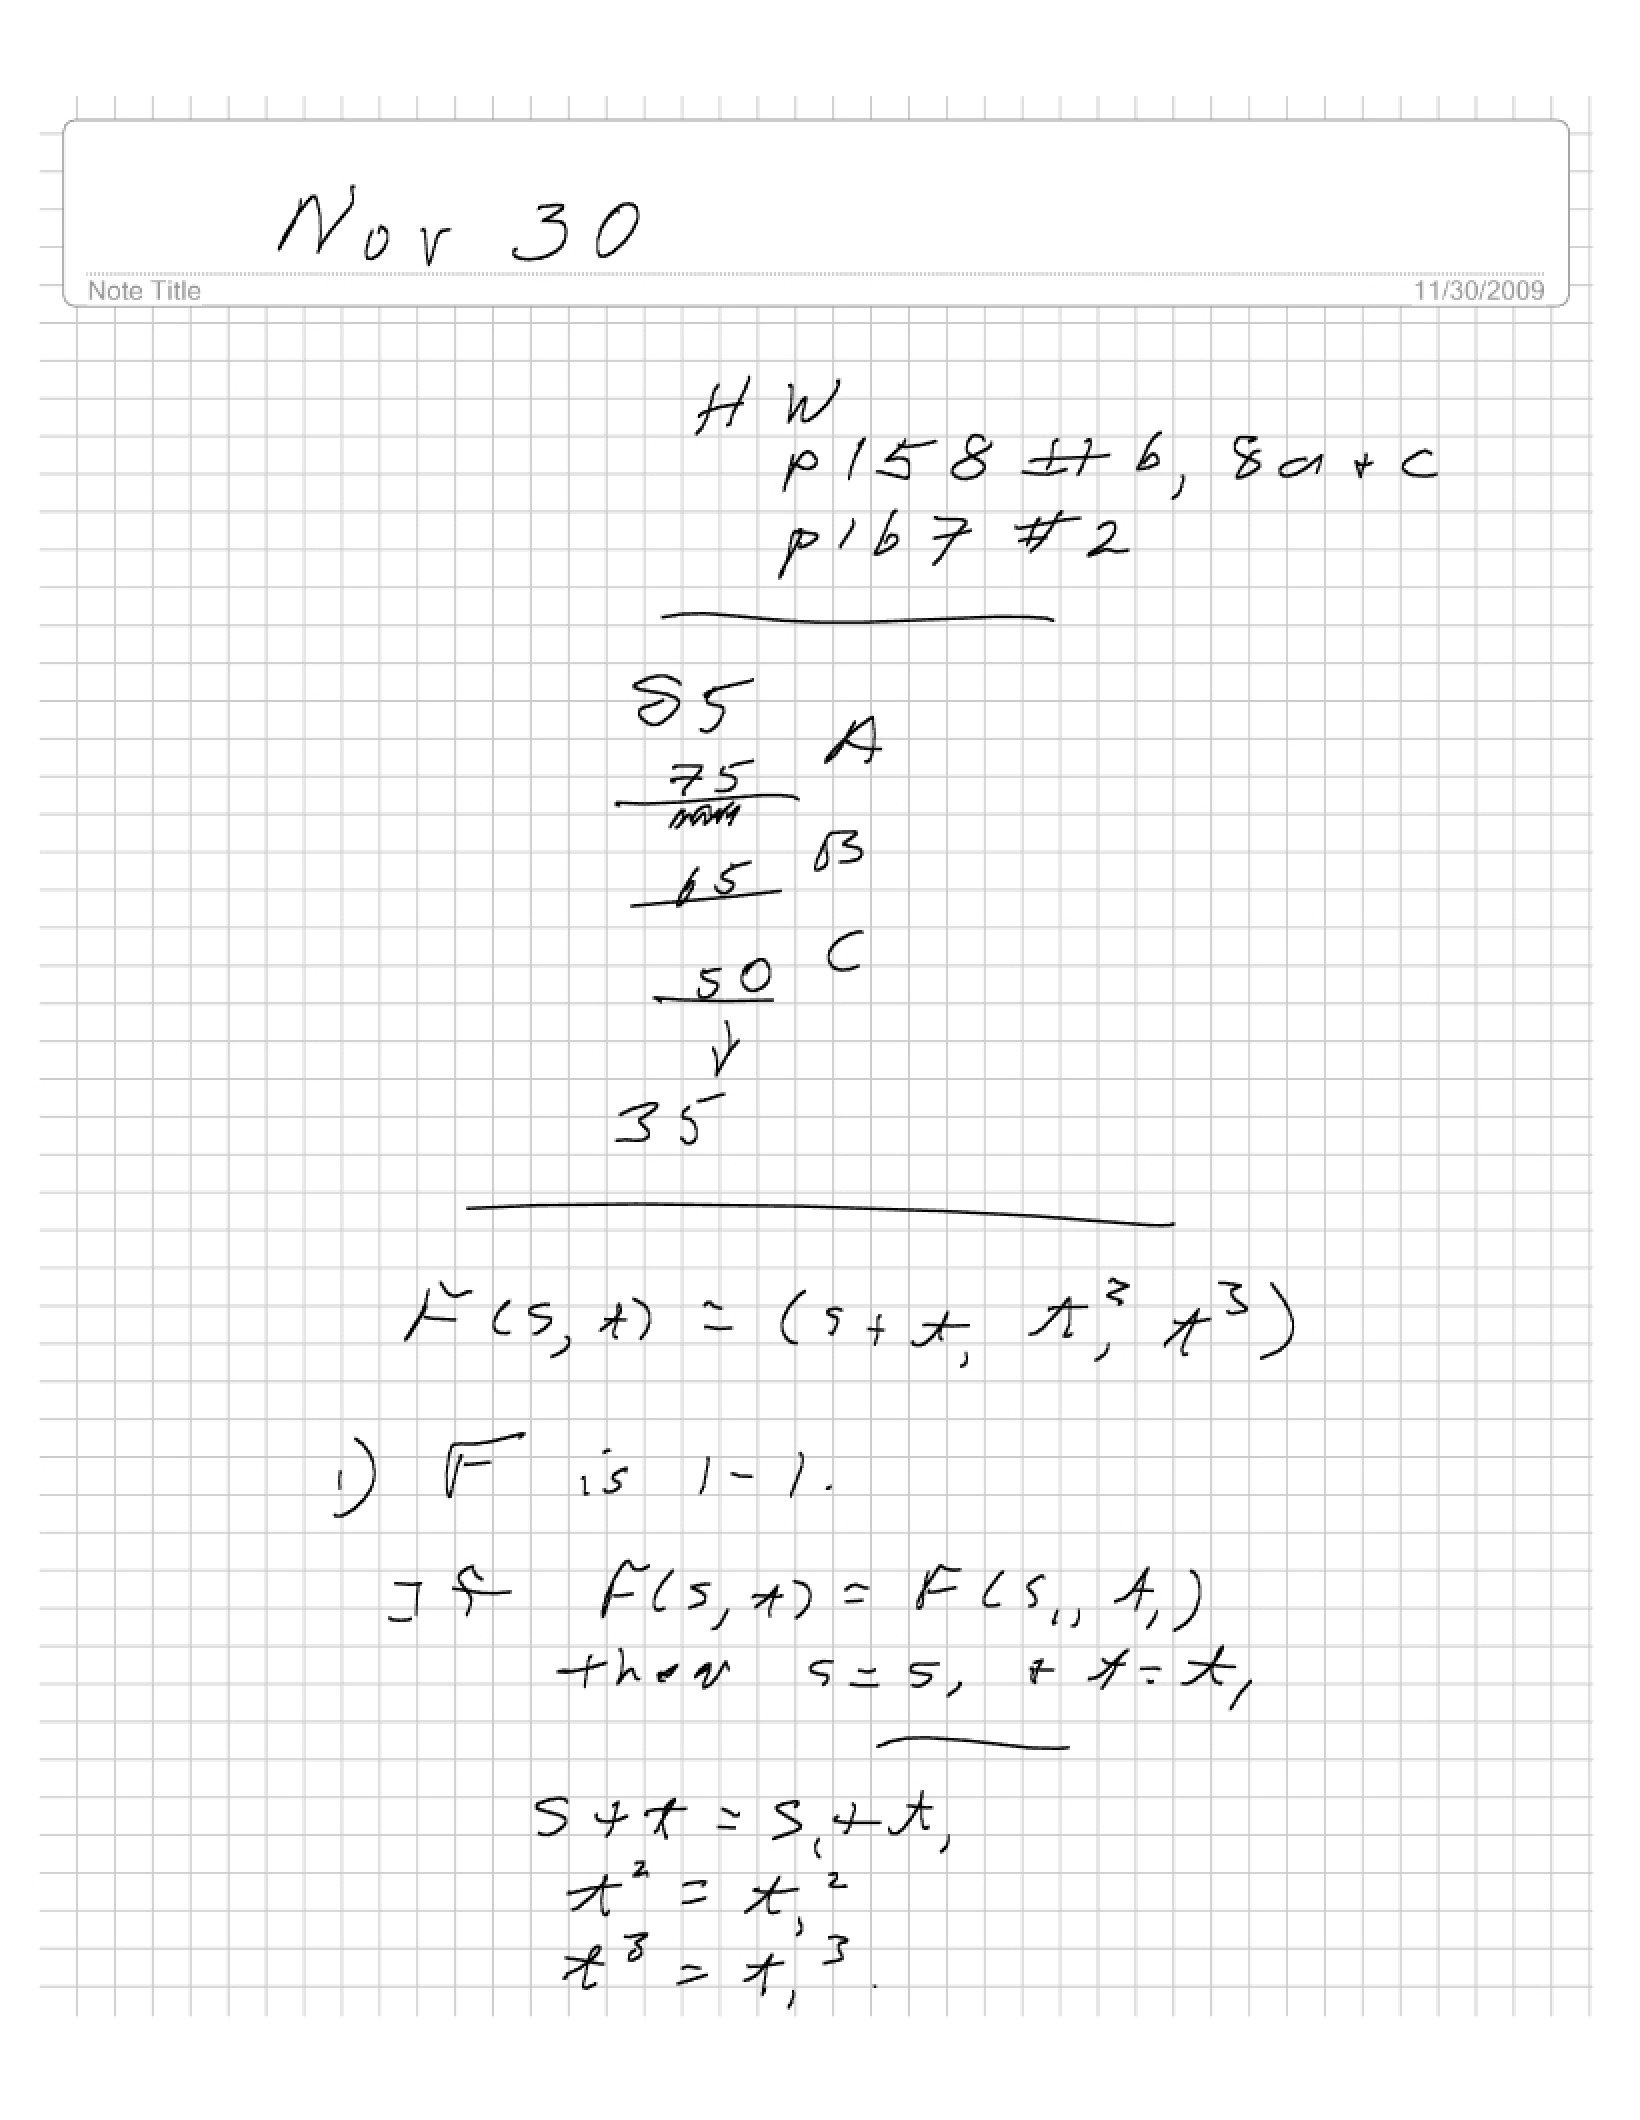 Nov 30
Note Title
11/30/2009
HW
p158 # 6, 8a + c
p167 #2
85
A
75
B
65
C
50
35
F(s,t) = (s+t, t², t³)
1) F is 1-1.
If F(s,t) = F(s₁, t₁)
then s = s₁ + t = t₁
s + t = s₁ + t₁
t² = t₁²
t³ = t₁³.